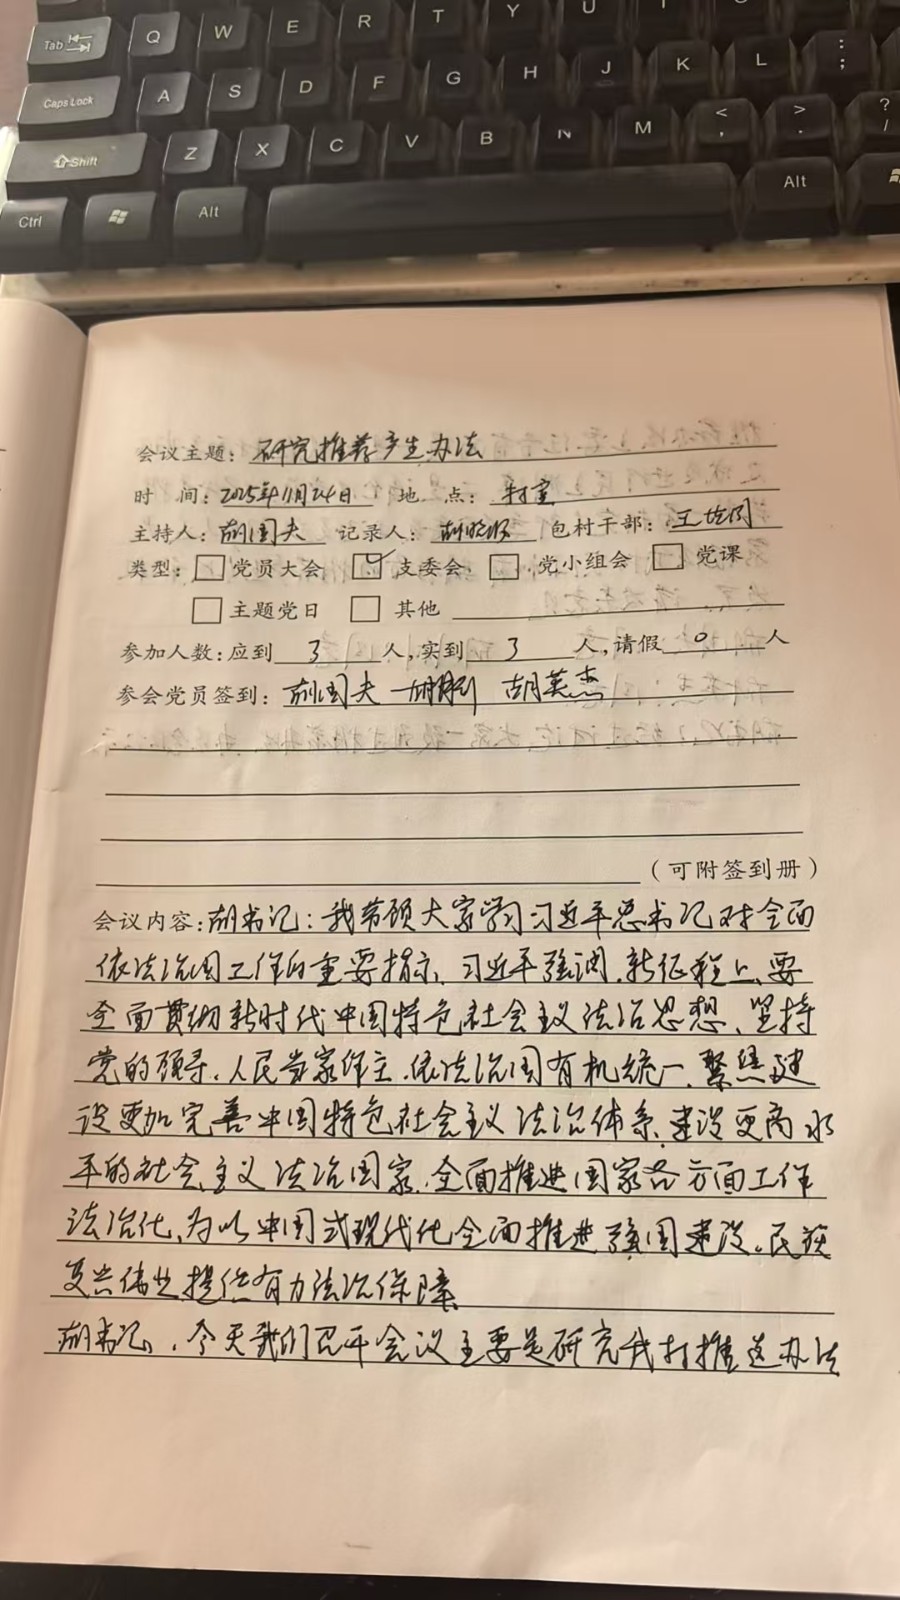 Tab Q W E R T Y U
Caps Lock A S D F G H J K L : ;
Shift Z X C V B N M < , > . ? /
Ctrl Alt Alt
会议主题：研究推荐产生办法
时 间：2025年11月24日 地 点：村室
主持人：胡国夫 记录人：胡晓 包村干部：王
类型：□党员大会 ☑支委会 □党小组会 □党课
□主题党日 □其他
参加人数：应到 3 人，实到 3 人，请假 0 人
参会党员签到：胡国夫 胡 胡英杰
（可附签到册）
会议内容：胡书记：我带领大家学习习近平总书记对全面
依法治国工作的重要指示，习近平强调，新征程上，要
全面贯彻新时代中国特色社会主义法治思想、坚持
党的领导，人民当家作主，依法治国有机统一，聚焦建
设更加完善中国特色社会主义法治体系，建设更高水
平的社会主义法治国家，全面推进国家各方面工作
法治化，为以中国式现代化全面推进强国建设，民族
复兴伟业提供有力法治保障
胡书记，今天我们召开会议主要是研究我村推选办法